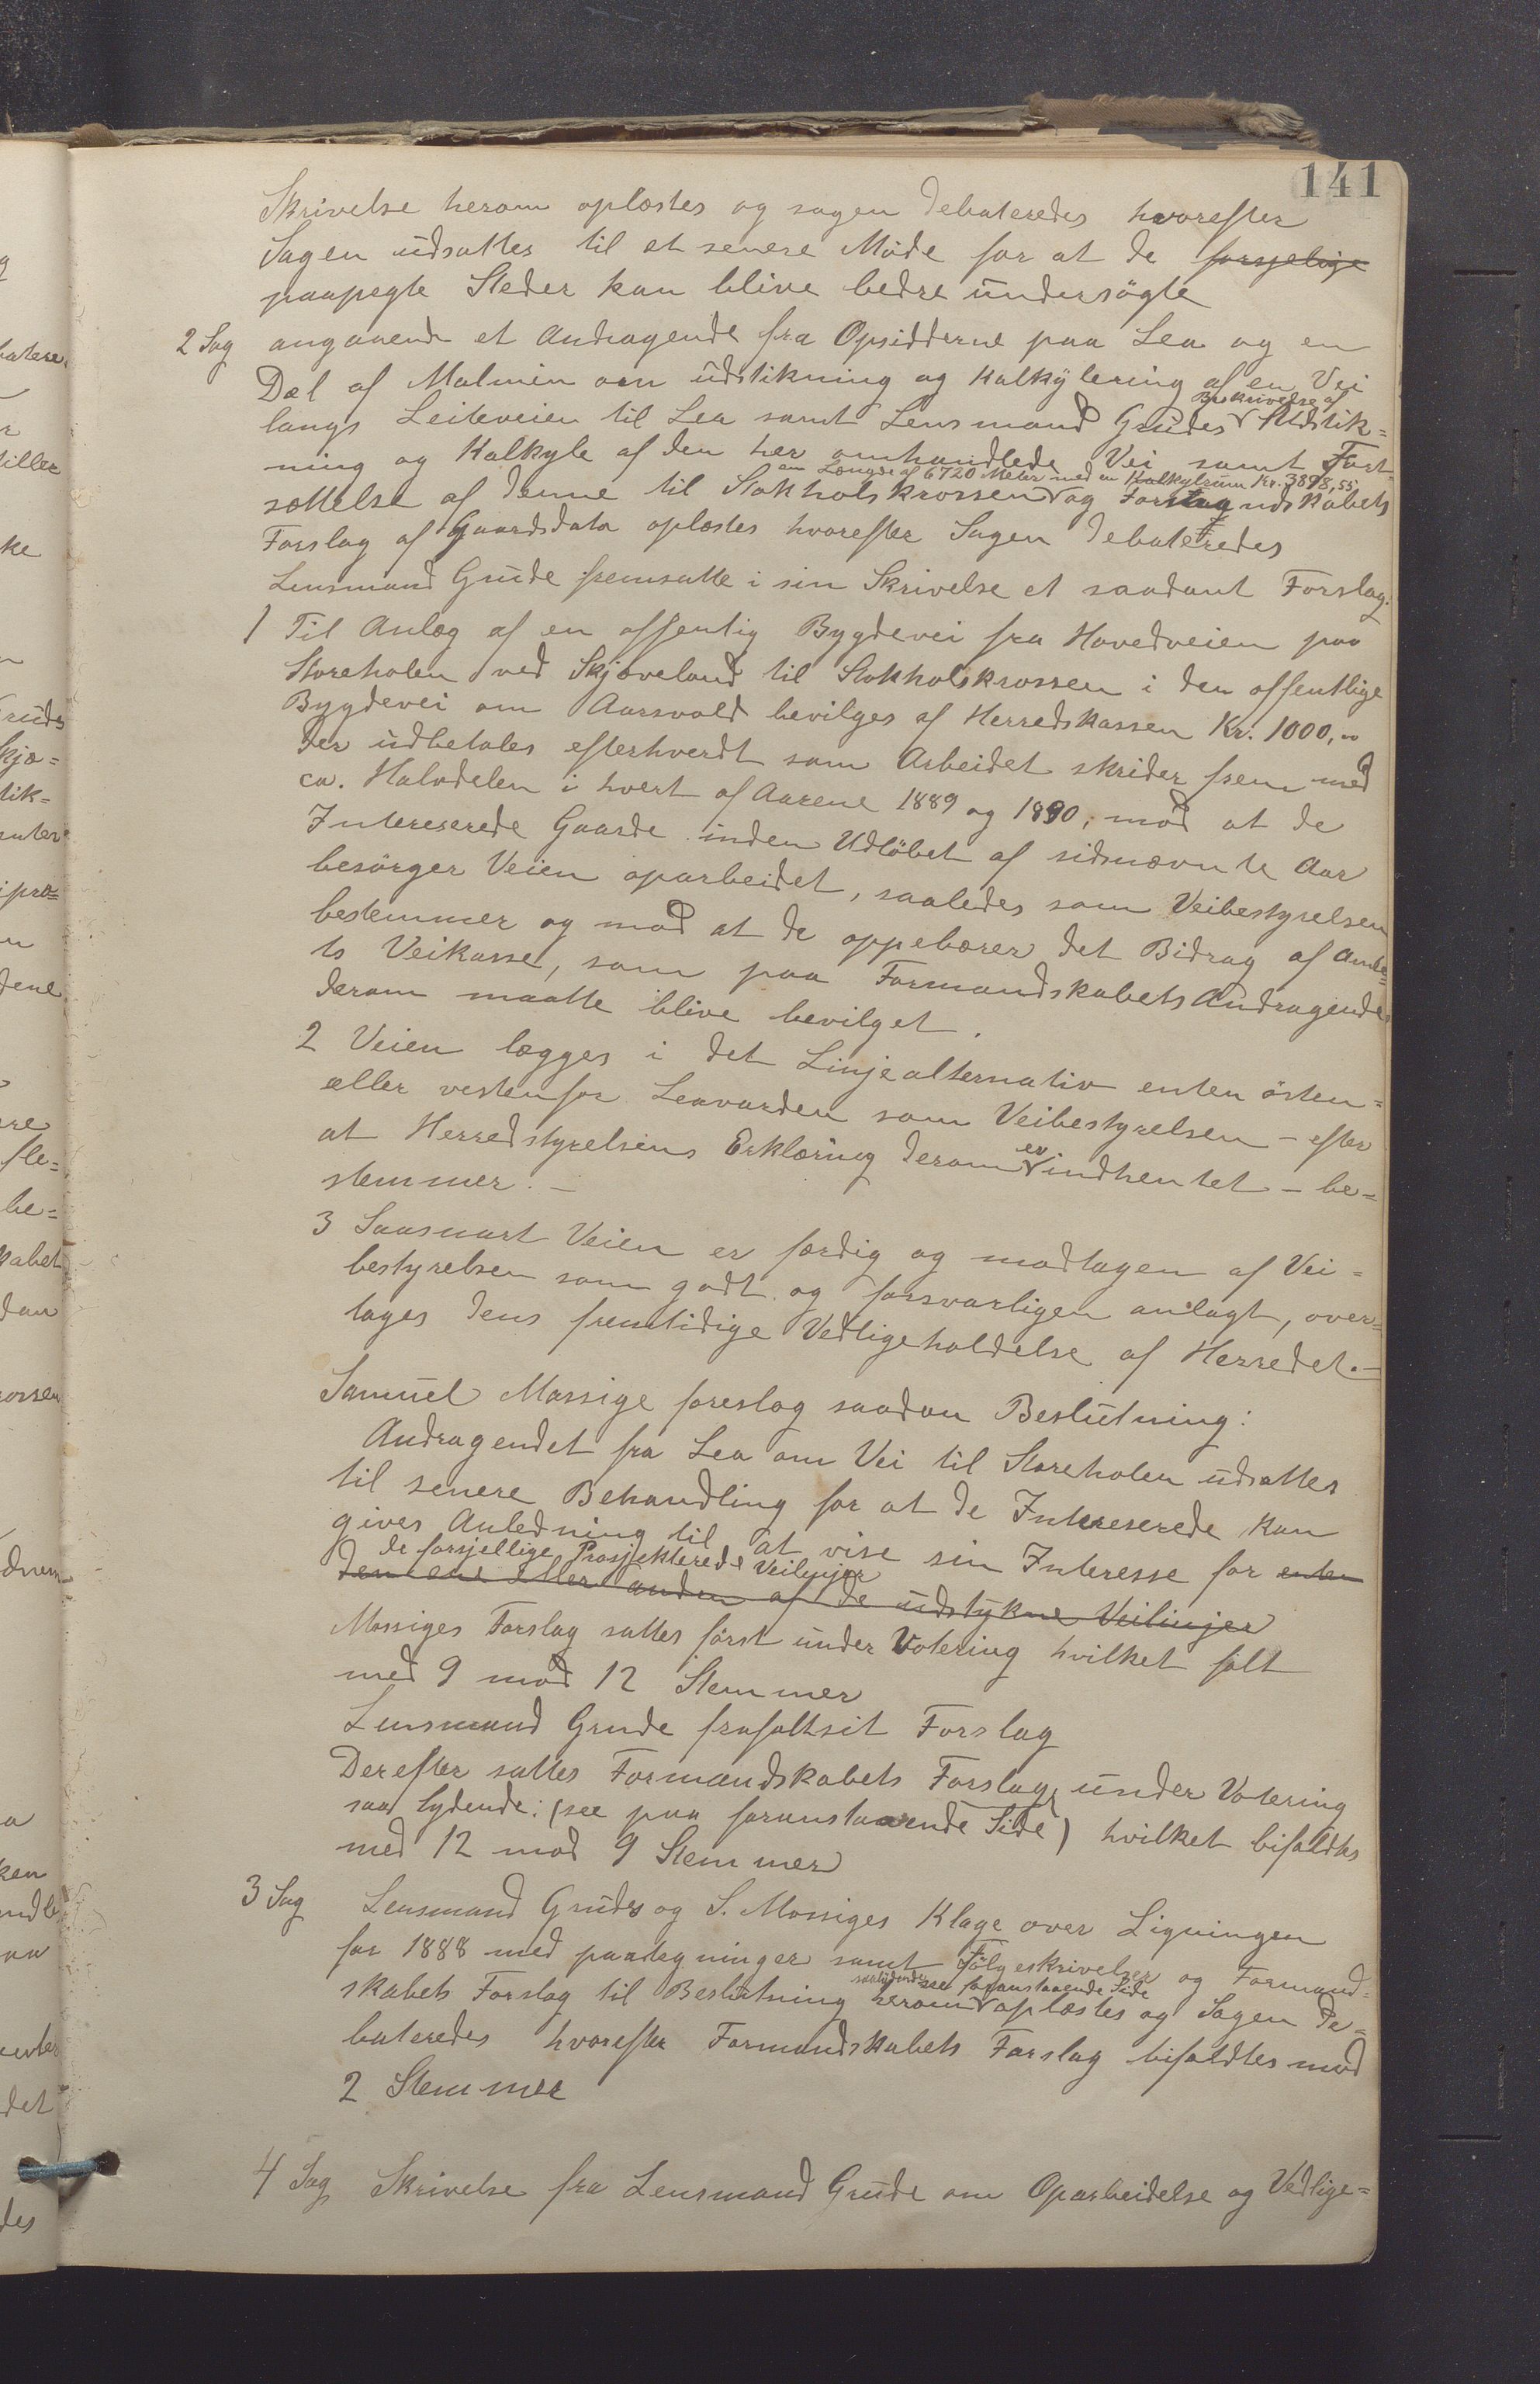 141
Skrivelse herom oplæstes og sagen debateredes hvorefter
Sagen udsattes til et senere Møde for at de forsjelige
paapegte Steder kan blive bedre undersøgte
2 Sag angaaende et Andragende fra Opsidderne paa Lea og en
Del af Malmin om udstikning og Kalkylering af en Vei
Beskrivelse af
langs Leiteveien til Lea samt Lensmand Grudes Udstik=
ning og Kalkyle af den her omhandlede Vei samt Fort=
en Længde af 6720 Meter med en Kalkylsum Kr. 3898,55
sættelse af denne til Stokholskrossen og Formandskabets
Forslag af Gaardsdato oplæstes hvorefter Sagen debateredes
Lensmand Grude fremsatte i sin Skrivelse et saadant Forslag:
1 Til Anlæg af en offentlig Bygdevei fra Hovedveien paa
Storeholen ved Skjæveland til Stokholskrossen i den offentlige
Bygdevei om Aarsvold bevilges af Herredskassen Kr. 1000,00
der udbetales efterhverdt som Arbeidet skrider frem med
ca. Halvdelen i hvert af Aarene 1889 og 1890, mod at de
Intereserede Gaarde inden Udløbet af sidsnævnte Aar
besørger Veien oparbeidet, saaledes som Veibestyrelsen
bestemmer og mod at de oppebærer det Bidrag af Amte=
ts Veikasse, som paa Formandskabets Andragende
derom maatte blive bevilget.
2 Veien lægges i det Linjealternativ enten østen=
eller vestenfor Leavarden som Veibestyrelsen – efter
er
at Herredstyrelsens Erklæring derom indhentet – be=
stemmer. –
3 Saasnart Veien er færdig og modtagen af Vei=
bestyrelsen som godt og forsvarligen anlagt, over=
tages dens fremtidige Vedligeholdelse af Herredet. –
Samuel Mossige foreslog saadan Beslutning:
Andragendet fra Lea om Vei til Storeholen udsattes
til senere Behandling for at de Intereserede kan
gives Anledning til at vise sin Interesse for enten
de forsjellige Prosjekterede Veilinjer
den ene eller anden af de udstukne Veilinjer
Mossiges Forslag sattes først under Votering hvilket falt
med 9 mod 12 Stemmer
Lensmand Grude frafalt sit Forslag
Derefter sattes Formandskabets Forslag under Votering
saa lydende: (see paa foranstaaende Side) hvilket bifaldtes
med 12 mod 9 Stemmer
3 Sag Lensmand Grudes og S. Mossiges Klage over Ligningen
for 1888 med paategninger samt Følgeskrivelser og Formand=
saalydende see foranstaaende Side
skabets Forslag til Beslutning herom oplæstes og Sagen de=
bateredes hvorefter Formandskabets Forslag bifaldtes mod
2 Stemmer
4 Sag Skrivelse fra Lensmand Grude om Oparbeidelse og Vedlige=